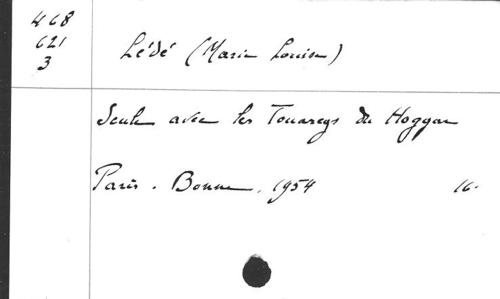 468
621
3
Lédé (Marie Louise)
Seule avec les Touaregs du Hoggar
Paris. Bonne, 1954 16.